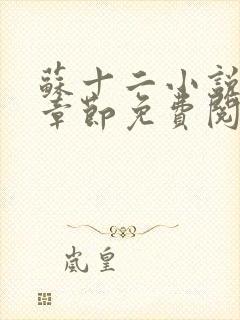 蘇十二小說
章節免費閱
嵐皇